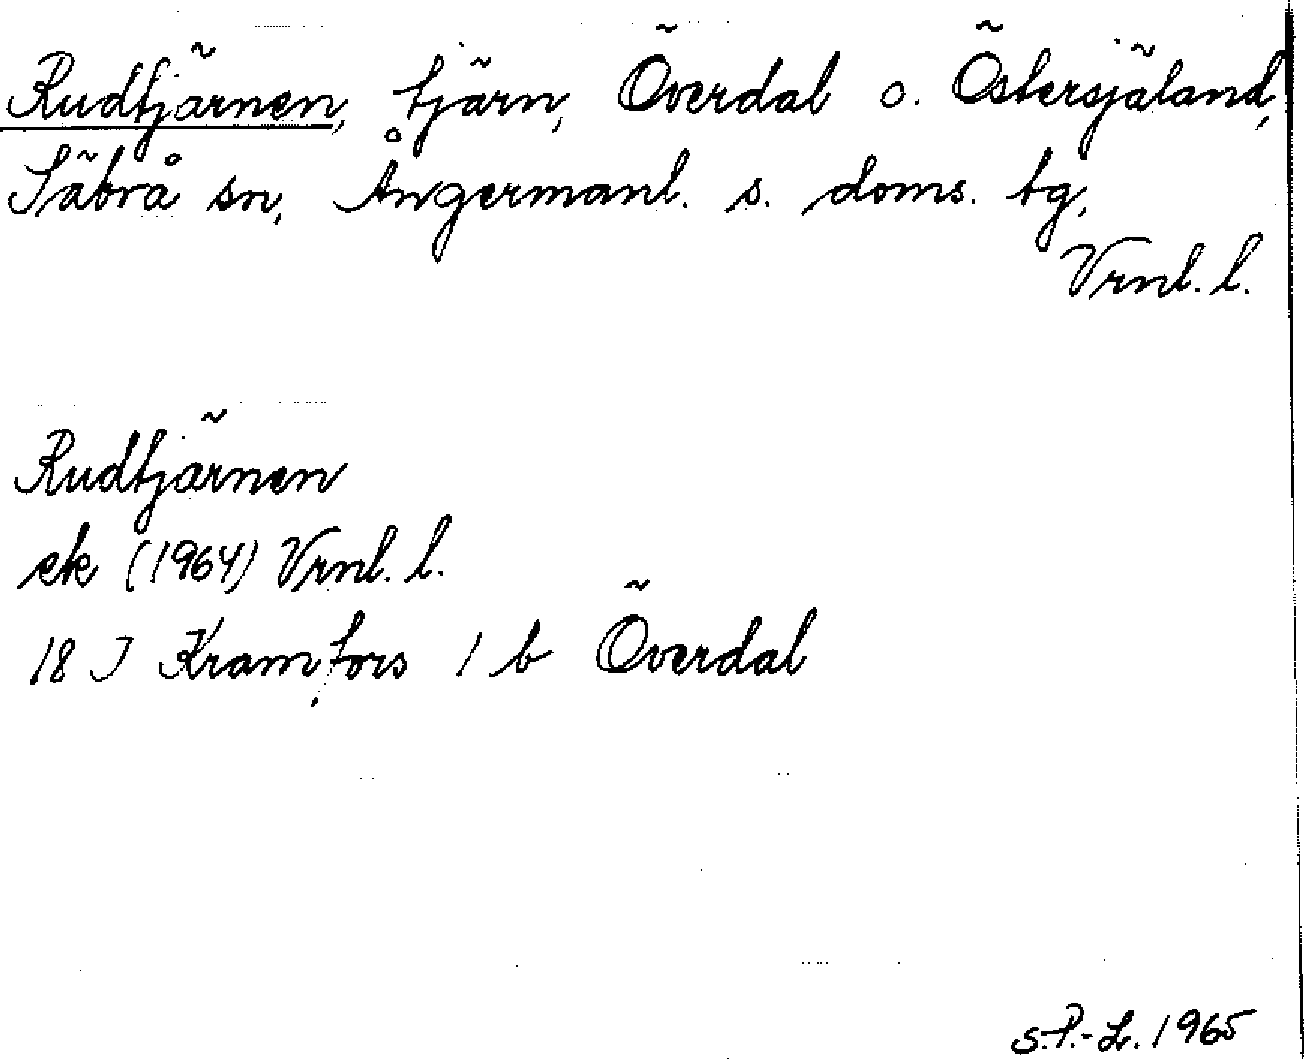 Rudtjärnen, tjärn, Överdal o. Östersjäland,
Säbrå sn, Ångermanl. s. doms. tg,
Vrnl. l.
Rudtjärnen
ek (1964) Vrnl. l.
18 J Kramfors 1 b Överdal
S.P.-L. 1965